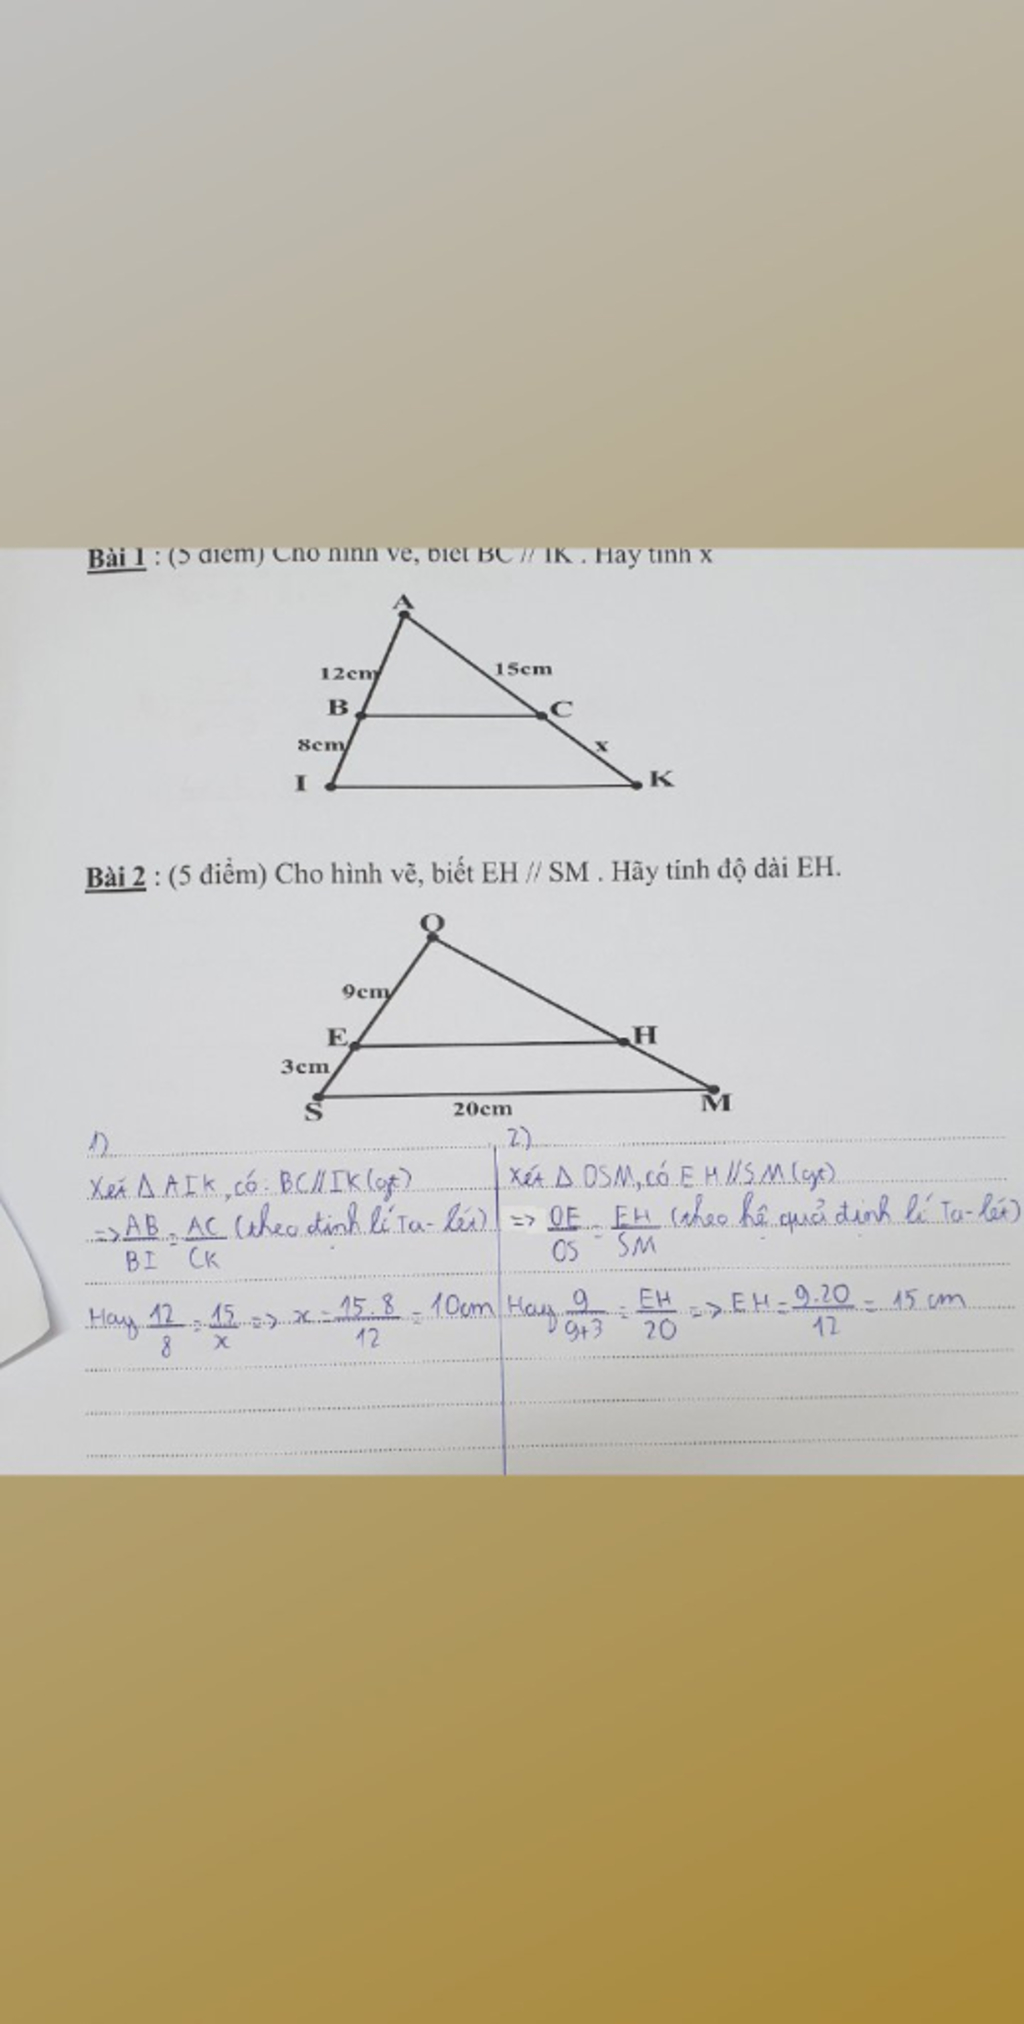 Bài 1 : (5 điểm) Cho hình vẽ, biết BC // IK . Hãy tính x
A
12cm
15cm
B
C
8cm
x
I
K
Bài 2 : (5 điểm) Cho hình vẽ, biết EH // SM . Hãy tính độ dài EH.
O
9cm
E
H
3cm
S
20cm
M
1)
Xét Δ AIK, có: BC // IK (gt)
=> AB/BI = AC/CK (theo định lí Ta-lét)
Hay 12/8 = 15/x => x = 15.8/12 = 10cm
2)
Xét Δ OSM, có EH // SM (gt)
=> OE/OS = EH/SM (theo hệ quả định lí Ta-lét)
Hay 9/9+3 = EH/20 => EH = 9.20/12 = 15 cm